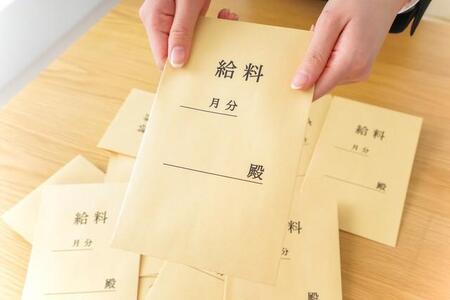 給料
月分
殿
給料
月分
殿
給料
月分
殿